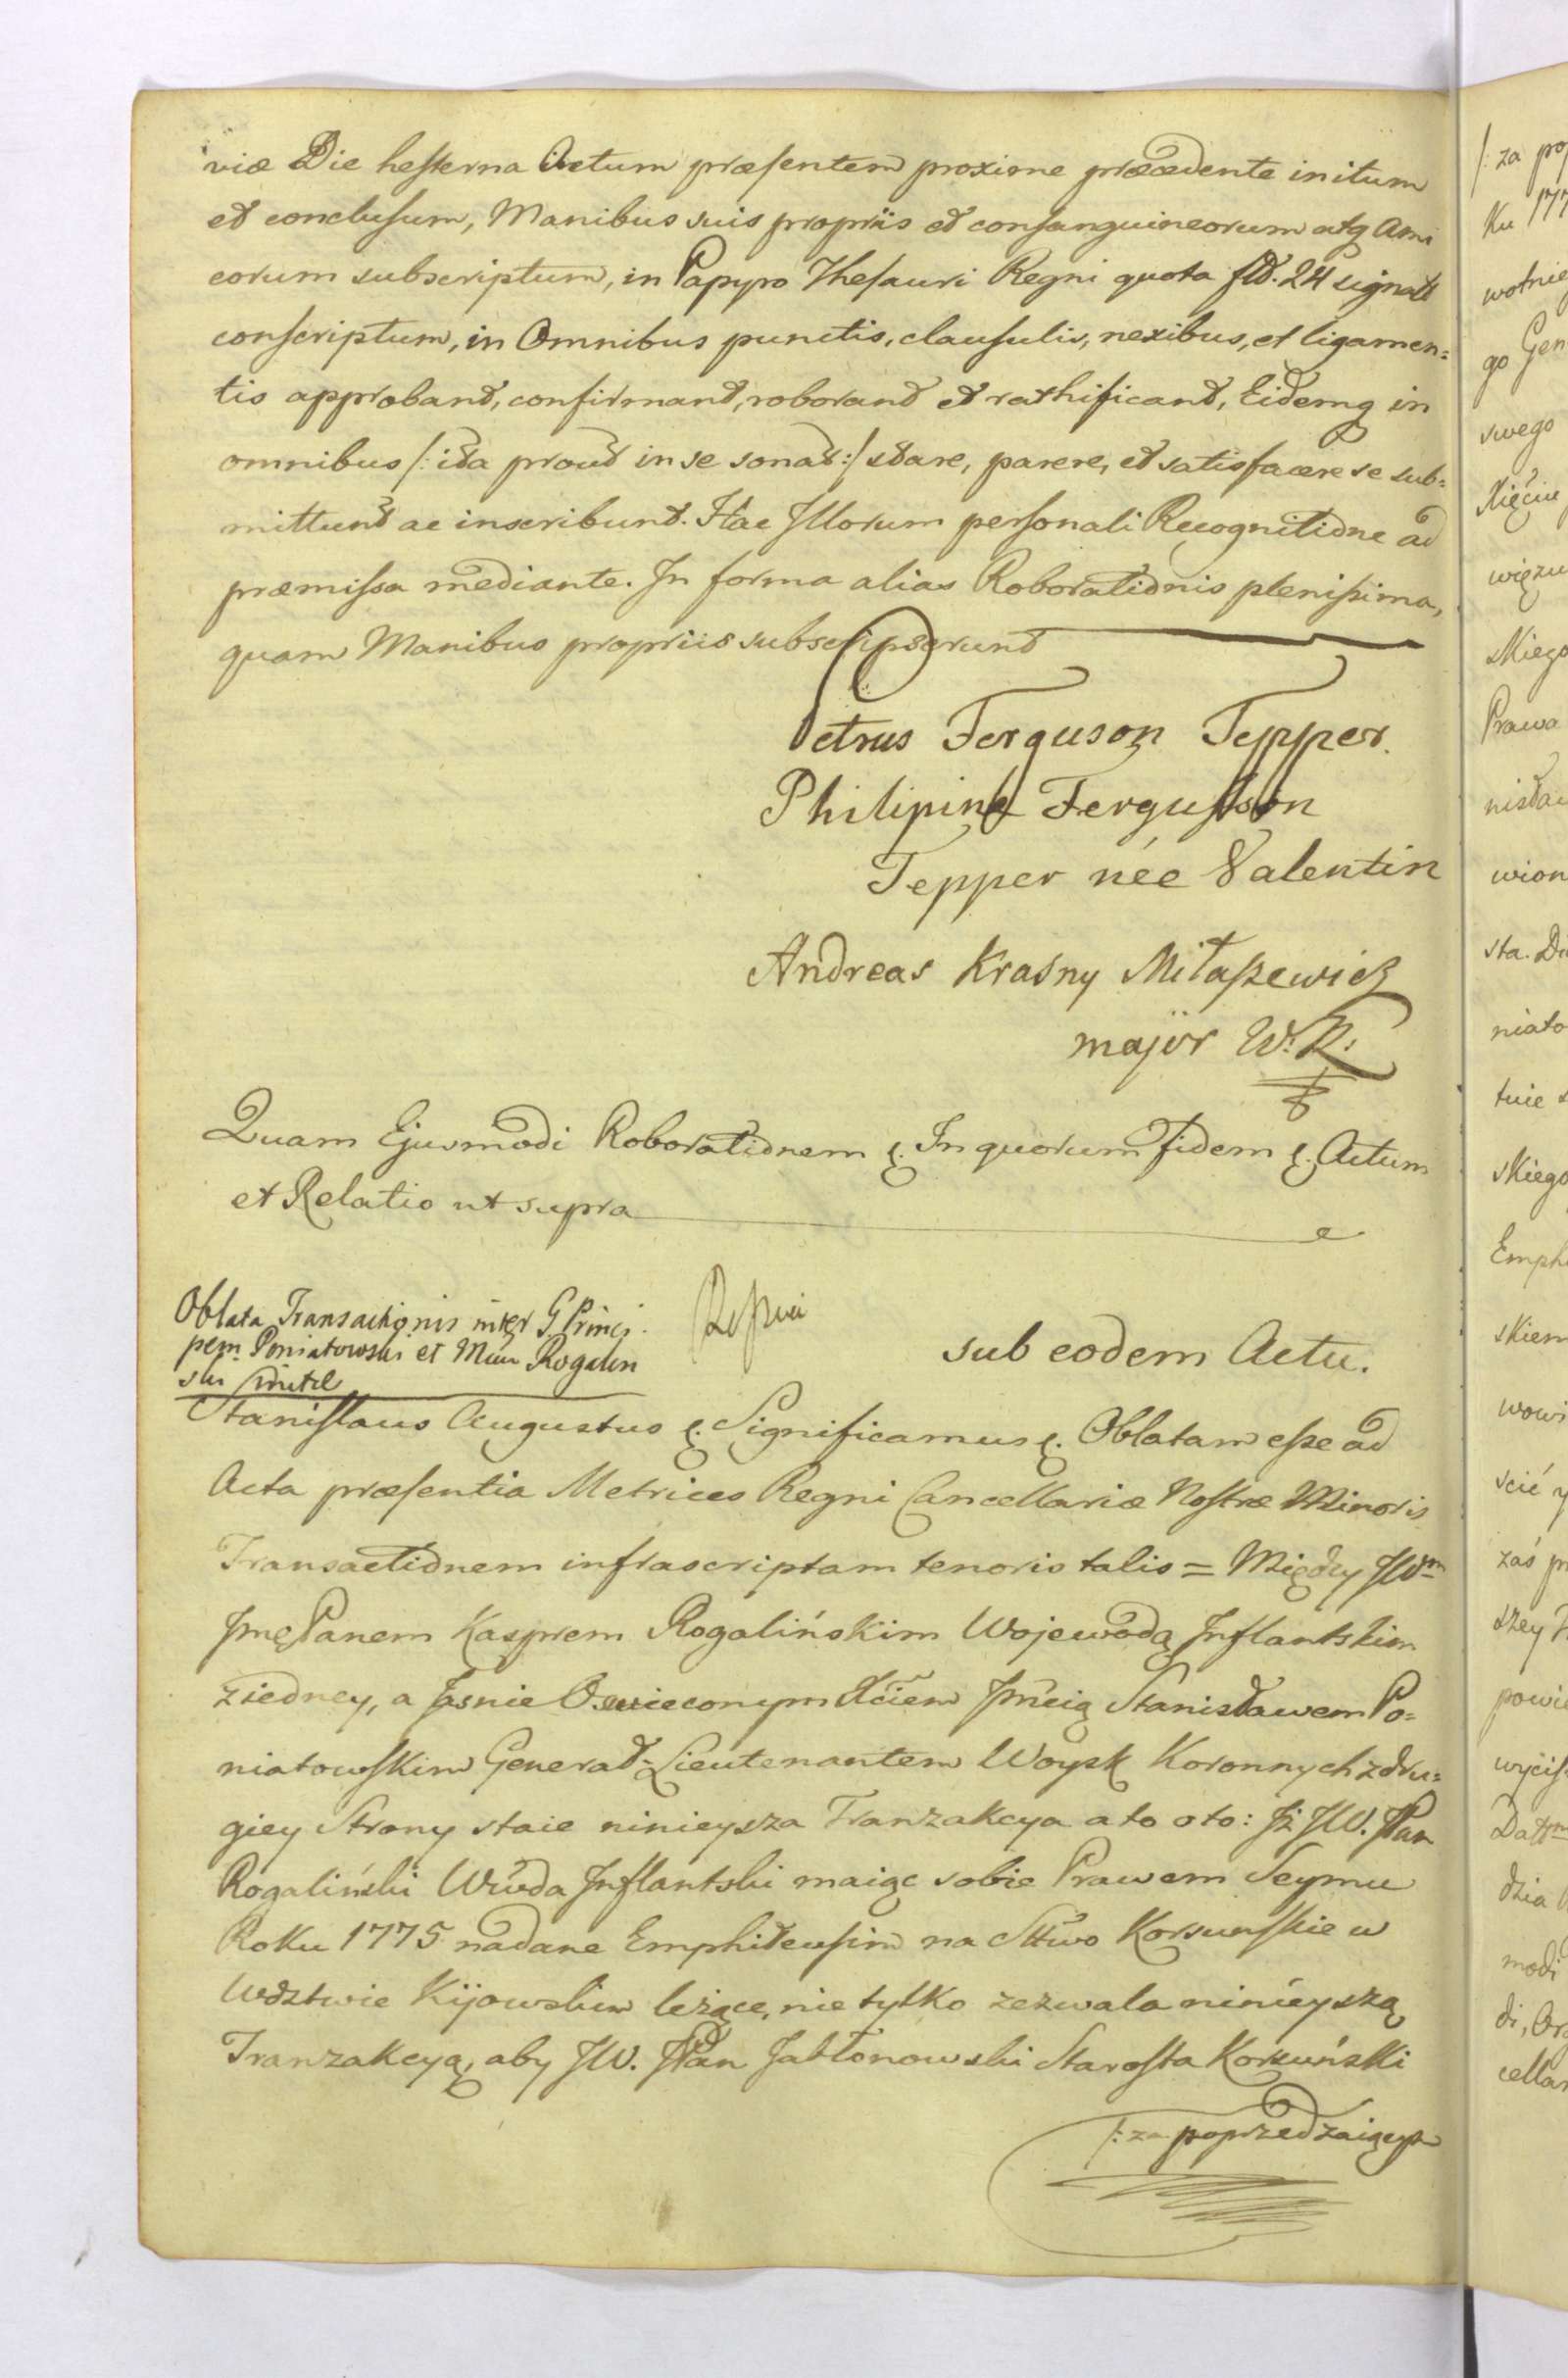 viæ Die hesterna Actum præsentem proxime præcedente initum
et conclusum, Manibus suis propriis et consanguineorum atq Ami
corum subscriptum, in Papyro Thesauri Regni quota fld. 24 signatt
conscriptum, in Omnibus punctis, clausulis, nexibus, et ligamen=
tis approband, confirmand, roborand et rathificand, Eidemq in
omnibus /: ita prout in se sonat :/ stare, parere, et satisfacere se sub=
mittunt ac inscribunt. Hac Illorum personali Recognitione ad
præmissa mediante. In forma alias Roborationis plenissima,
quam Manibus propriis subscripserunt
Petrus Ferguson Tepper.
Philipina Fergusson
Tepper née Valentin
Andreas Krasny Miłaszewicz
major W. K:
Quam Ejusmodi Roborationem &. In quorum fidem &. Actum
et Relatio ut supra
Oblata Transactionis inter G Princi
pem Poniatowski et Rogalin
ski
sub eodem Actu.
Stanislaus Augustus &. Significamus &. Oblatam esse ad
Acta præsentia Metrices Regni Cancellariæ Nostræ Minoris
Transactionem infrascriptam tenoris talis = Między JWm
Jmę Panem Kasprem Rogalińskim Wojewodą Inflantskim
z iedney, a Jasnie Oswieconym Xciem Jmcią Stanisławem Po=
niatowskim Generał-Lieutenantem Woysk Koronnych z dru=
giey Strony staie ninieysza Tranzakcya a to oto: Jż JW. JPan
Rogaliński Wwda Inflantski maiąc sobie Prawem Seymu
Roku 1775 nadane Emphiteusim na Sttwo Korsunskie w
Wdztwie Kijowskim leżące, nie tylko zezwala ninieyszą
Tranzakcyą, aby JW. JPan Jabłonowski Starosta Korsuński
/: za poprzedzaiącym
/: za pop
Ku 177
wotnie
go Gen
swego
Xięciu
więzu
skiego
Prawa
nisław
wion
sta. Du
niato
tuie
skiego
Emphi
skiem
wowi
scić
zaś pr
szey
powie
wyciś
Dattm
dzia
modi
di, Or
cellar